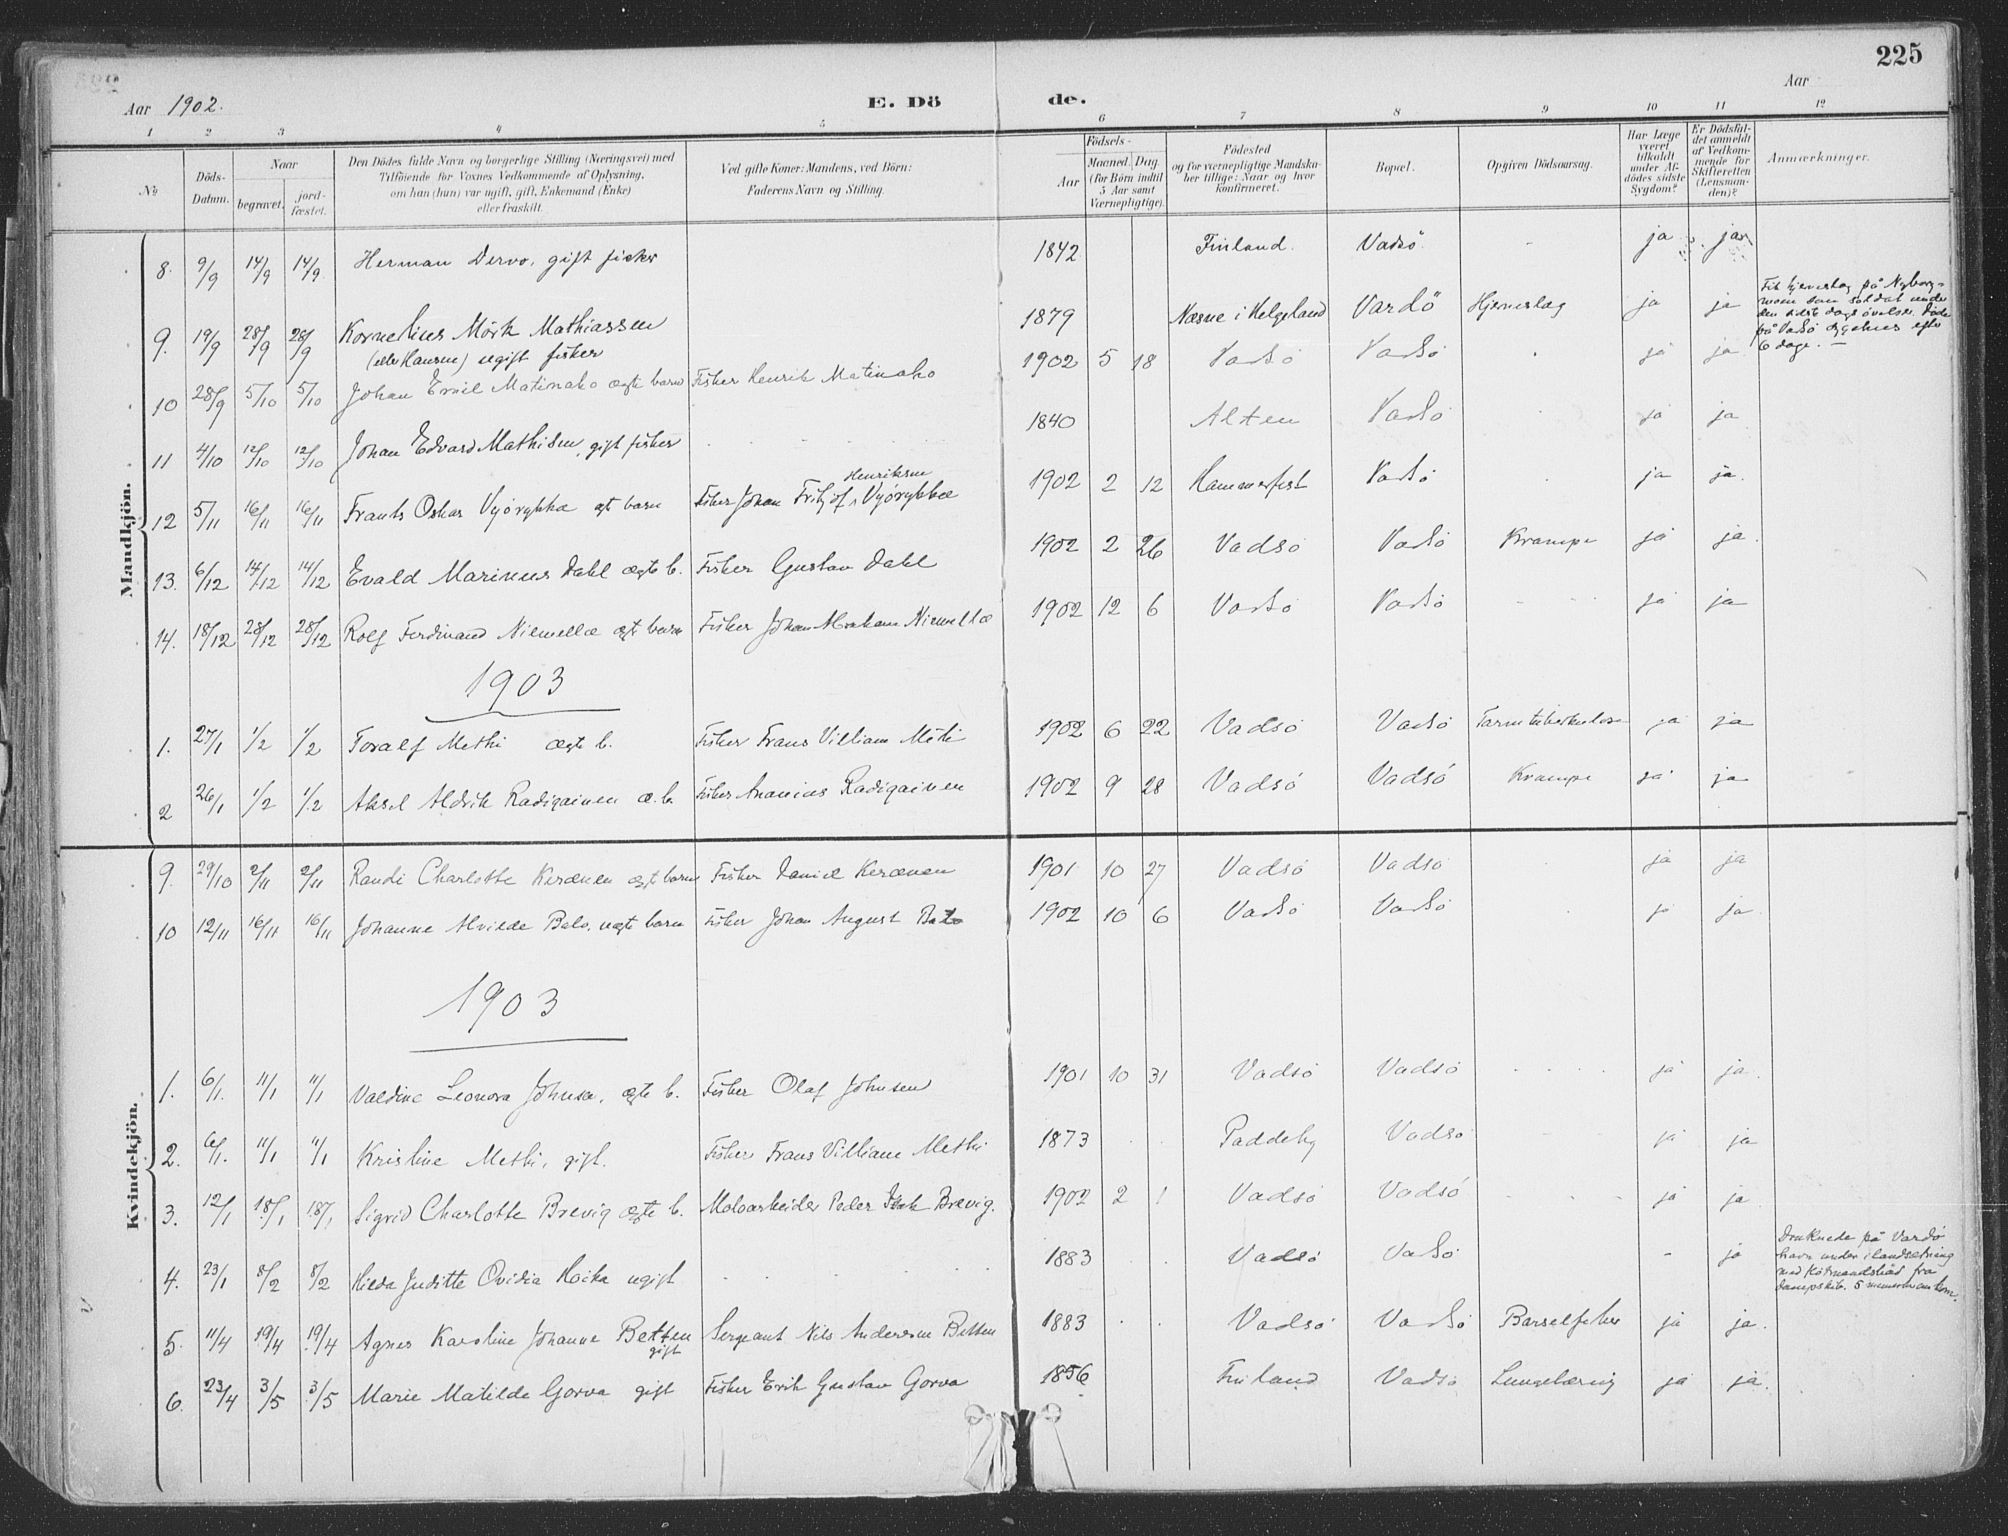 225
Aar 1902.
E. Dö de.
Aar
1 2 3 4 5 6 7 8 9 10 11 12
No
Döds-Datum.
Naar
begravet.
jord-fæstet.
Den Dödes fulde Navn og borgerlige Stilling (Næringsvei) med
Tilföiende for Voxnes Vedkommende af Oplysning,
om han (hun) var ugift, gift, Enkemand (Enke)
eller fraskilt.
Ved gifte Koner: Mandens, ved Börn:
Faderens Navn og Stilling.
Födsels-
Aar
Maaned. Dag.
(for Börn indtil
5 Aar samt
Værnepligtige).
Födested
og for værnepligtige Mandska-
ber tillige: Naar og hvor
konfirmeret.
Bopæl.
Opgiven Dödsaarsag.
Har Læge
været
tilkaldt
under Af-
dödes sidste
Sygdom?
Er Dödsfal-
det anmeldt
af Vedkom-
mende for
Skifteretten
(Lensman-
den)?
Anmærkninger.
Mandkjön.
8. 9/9 14/9 14/9 Herman Dervo, gift fisker 1842 Finland. Vadsö. - ja ja
9. 19/9 28/9 28/9 Kornelius Mörk Mathiassen 1879 Næsne i Helgeland Vardö Hjerneslag ja ja
(eller Hansen) ugift fisker
Fik hjerneslag på Nyborg-
moen som soldat under
den sidste dags øvelse. Døde
på Vadsö sygehus efter
6 dage. -
10 28/9 5/10 5/10 Johan Emil Matinako ægte barn Fisker Henrik Matinako 1902 5 18 Vadsö Vadsö ja ja
11 4/10 12/10 12/10 Johan Edvard Mathisen, gift fisker 1840 Alten Vadsö ja ja
12 5/11 16/11 16/11 Frants Oskar Vyörykkæ egt barn Fisker Johan Fritjof Henriksen Vyörykkæ 1902 2 12 Hammerfest Vadsö ja ja.
13. 6/12 14/12 14/12 Evald Marinus Dahl ægte b. Fisker Gustav Dahl 1902 2 26 Vadsö Vadsö Krampe ja ja.
14. 18/12 28/12 28/12 Rolf Ferdinand Niemellæ egt barn Fisker Johan Abraham Niemellæ 1902 12 6 Vadsö Vadsö ja ja
1903
1. 27/1 1/2 1/2 Toralf Methi ægte b. Fisker Frans Villiam Meti 1902 6 22 Vadsö Vadsö Tarmtuberkulose ja ja
2 26/1 1/2 1/2 Aksel Aldrik Radigainen æ. b. Fisker Ananias Radigainen 1902 9 28 Vadsö Vadsö Krampe ja ja
Kvindekjön.
9. 29/10 2/11 2/11 Randi Charlotte Kerænen egt barn Fisker Daniel Kerænen 1901 10 27 Vadsö Vadsö ja ja
10 12/11 16/11 16/11 Johanne Alvilde Balo, uægte barn Fisker Johan August Balo 1902 10 6 Vadsö Vadsö ja ja.
1903
1. 6/1. 11/1 11/1 Valdine Leonora Johnsen, ægte b. Fisker Olaf Johnsen 1901 10 31 Vadsö Vadsö ja ja.
2. 6/1. 11/1 11/1 Kristine Methi, gift. Fisker Frans Villiam Methi 1873 Paddeby Vadsö ja ja
3. 12/1 18/1 18/1 Sigrid Charlotte Brevig ægte b. Moloarbeider Peder Isak Brevig. 1902 2 1 Vadsö Vadsö ja ja.
4. 23/1 8/2 8/2 Hilda Juditte Ovidia Hoika ugift 1883 Vadsö Vadsö - ja
Druknede på Vardö
havn under ilandsetning
med Kötmandsbåd fra
dampskib. 5 mennesker omkom.
5. 11/4 19/4 19/4 Agnes Karoline Johanne Betten gift Sergeant Nils Andersen Betten 1883 Vadsö Vadsö Barselfeber ja ja.
6. 23/4 3/5 3/5 Marie Matilde Gorva gift Fisker Erik Gustav Gorva 1856 Finland Vadsö Lungetæring ja ja.